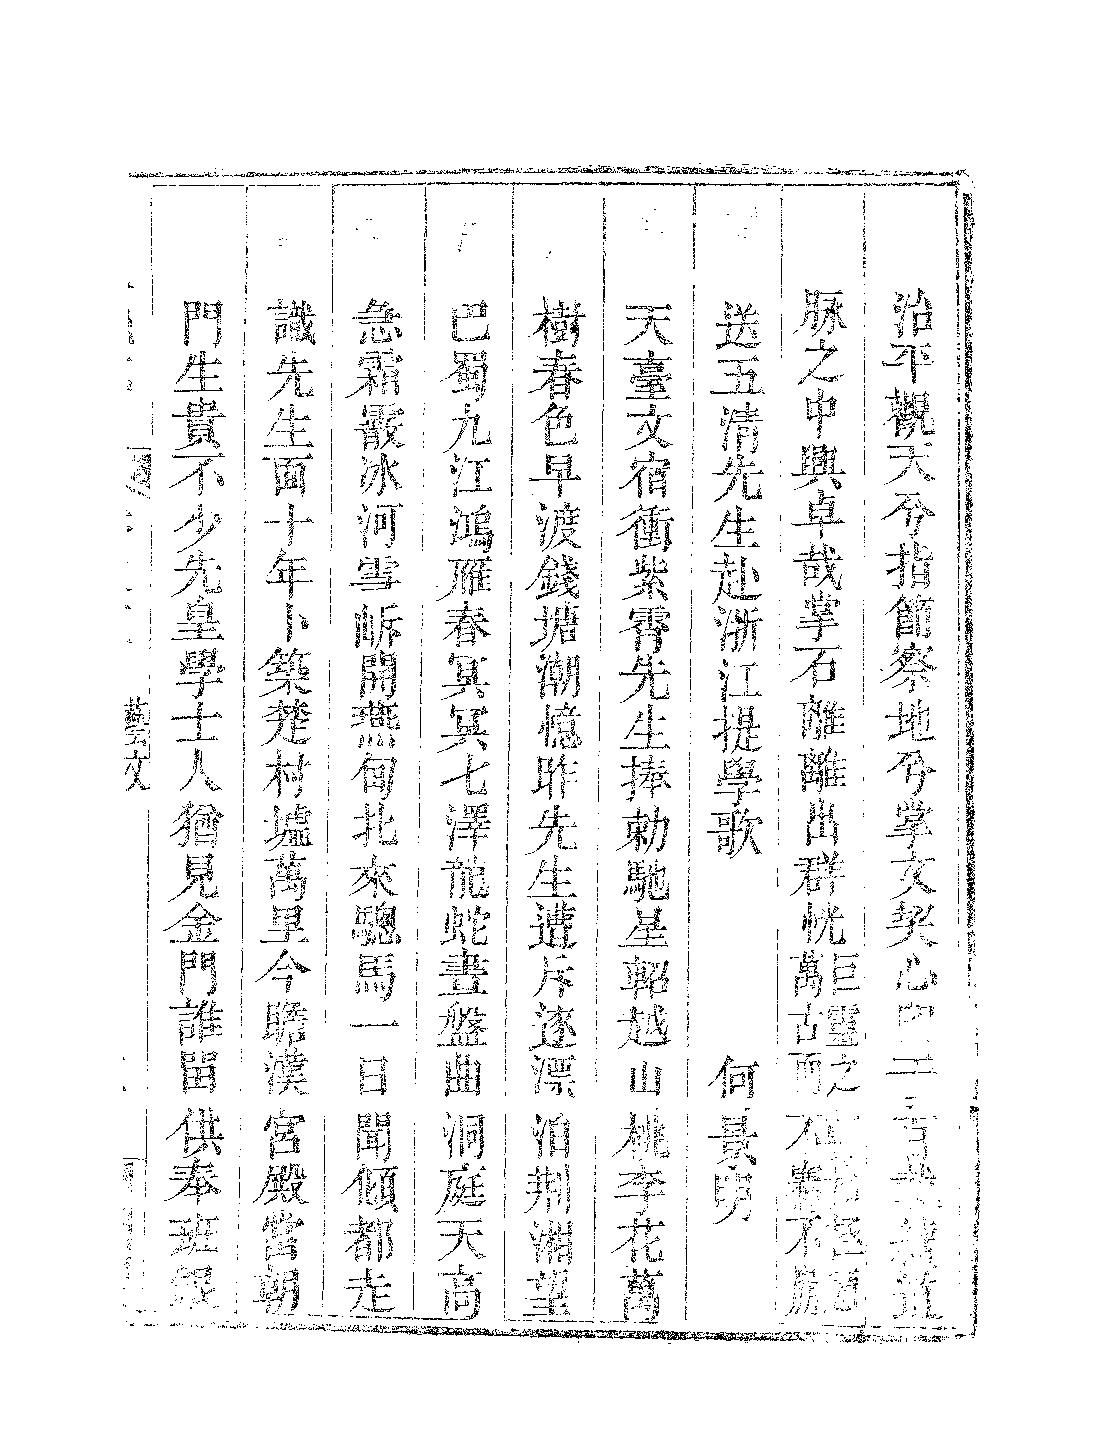 治平觀天兮指節察地兮掌文契心
脉之中興卓哉掌石離離出群恍巨靈之
萬古而不
送五清先生赴浙江提學歌 何景明
天臺文宿衝紫霄先生捧勅馳星軺越山桃李花萬
樹春色早渡錢塘潮憶昨先生遭斥逐漂泊荆湘望
巴蜀九江鴻雁春冥冥七澤龍蛇晝盤曲洞庭天高
急霜霰冰河雪岍開燕甸北來驄馬一日聞傾都走
識先生面十年卜築楚村墟萬里今瞻漢宮殿當朝
門生貴不少先皇學士人猶見金門誰留供奉班
藝文